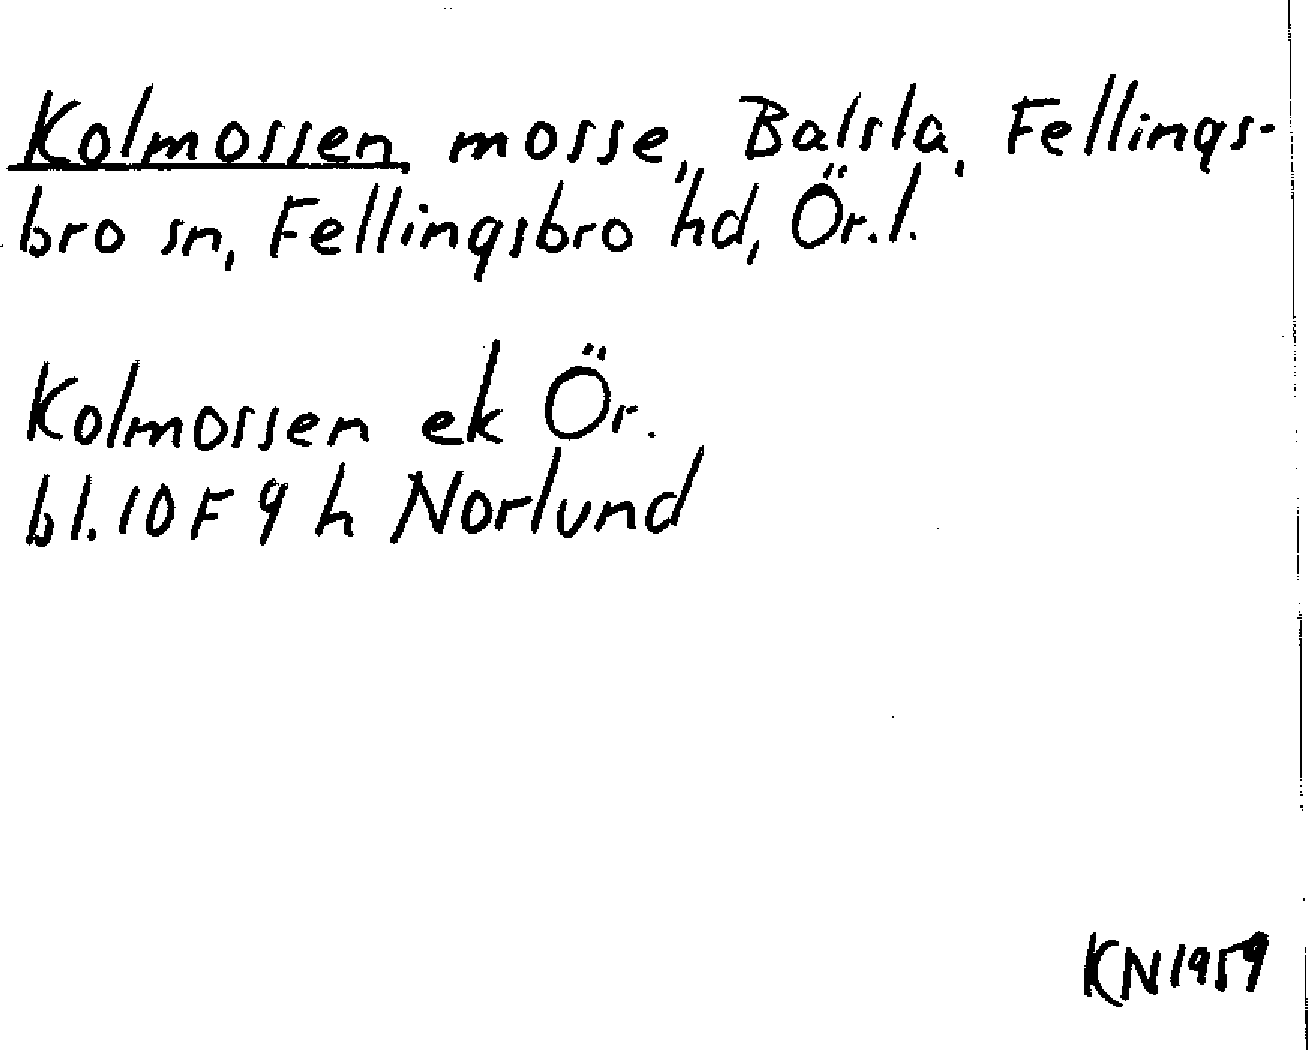 Kolmossen, mosse, Balsla, Fellings-
bro sn, Fellingsbro hd, Ör.l.
Kolmossen ek Ör.
bl. 10 F 9 h Norlund
KN 1959